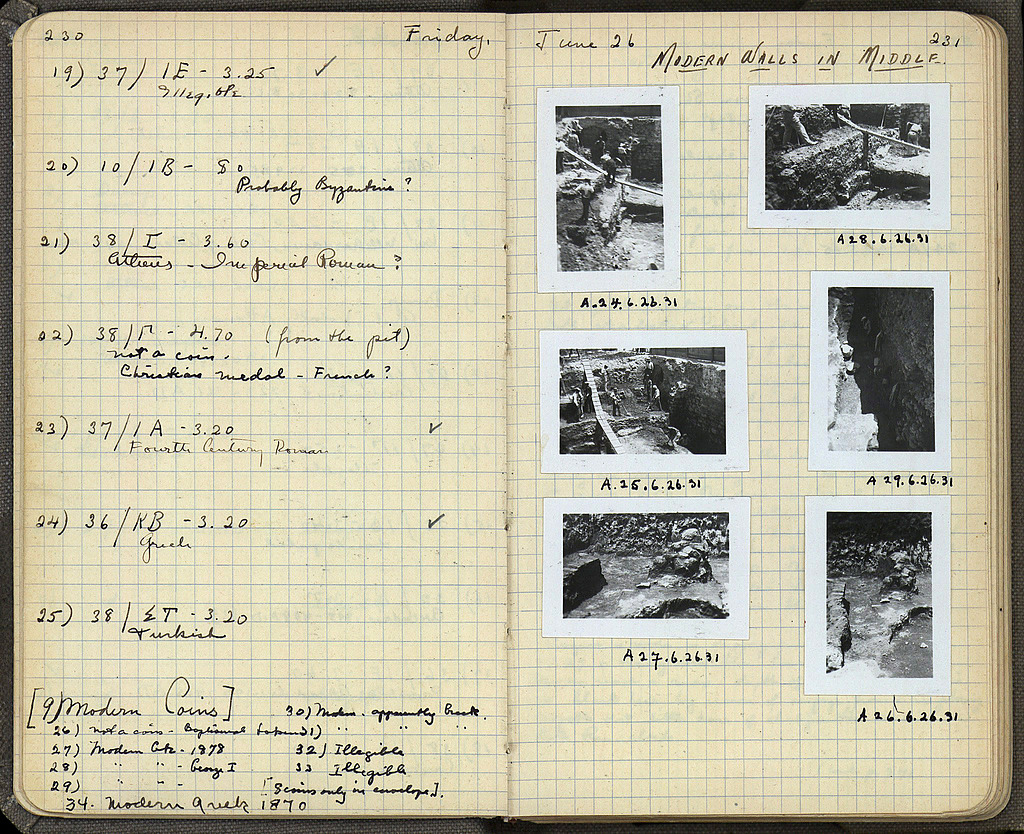 230
Friday,
19) 37/ 1E - 3.25 ✓
Illegible
20) 10/1B - 80
Probably Byzantine?
21) 38/I - 3.60
Athens - Imperial Roman?
22) 38/Γ - 4.70 (from the pit)
not a coin.
Christian medal - French?
23) 37/1A - 3.20 ✓
Fourth Century Roman
24) 36/KB - 3.20 ✓
Greek
25) 38/ΣT - 3.20
Turkish
[9) Modern Coins]
26) not a coin - Baptismal token
27) Modern Gk - 1878
28) " " - George I
29) " -
30) Modern - apparently Greek.
31) " " "
32) Illegible
33 Illegible
[8 coins only in envelope].
34. Modern Greek 1870
June 26
231
MODERN WALLS IN MIDDLE.
A.24.6.26.31
A28.6.26.31
A.25.6.26.31
A 29.6.26.31
A27.6.26.31
A 26.6.26.31